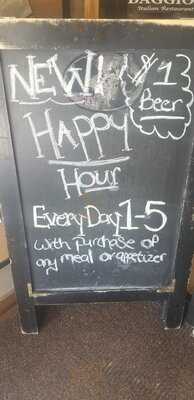 BAGGIO
Italian Restaurant
NEW!! $1
Beer
HAPPY
Hour
EveryDay 1-5
with purchase of
any meal or appetizer